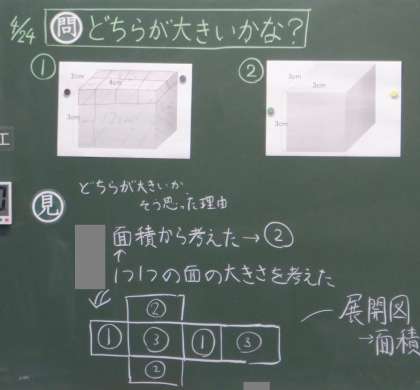 4/24
問 どちらが大きいかな?
① 
2cm
4cm
3cm
②
3cm
3cm
3cm
見
どちらが大きいか
そう思った理由
面積から考えた→②
↑
1つ1つの面の大きさを考えた
②
① ③ ① ③
②
展開図
→面積